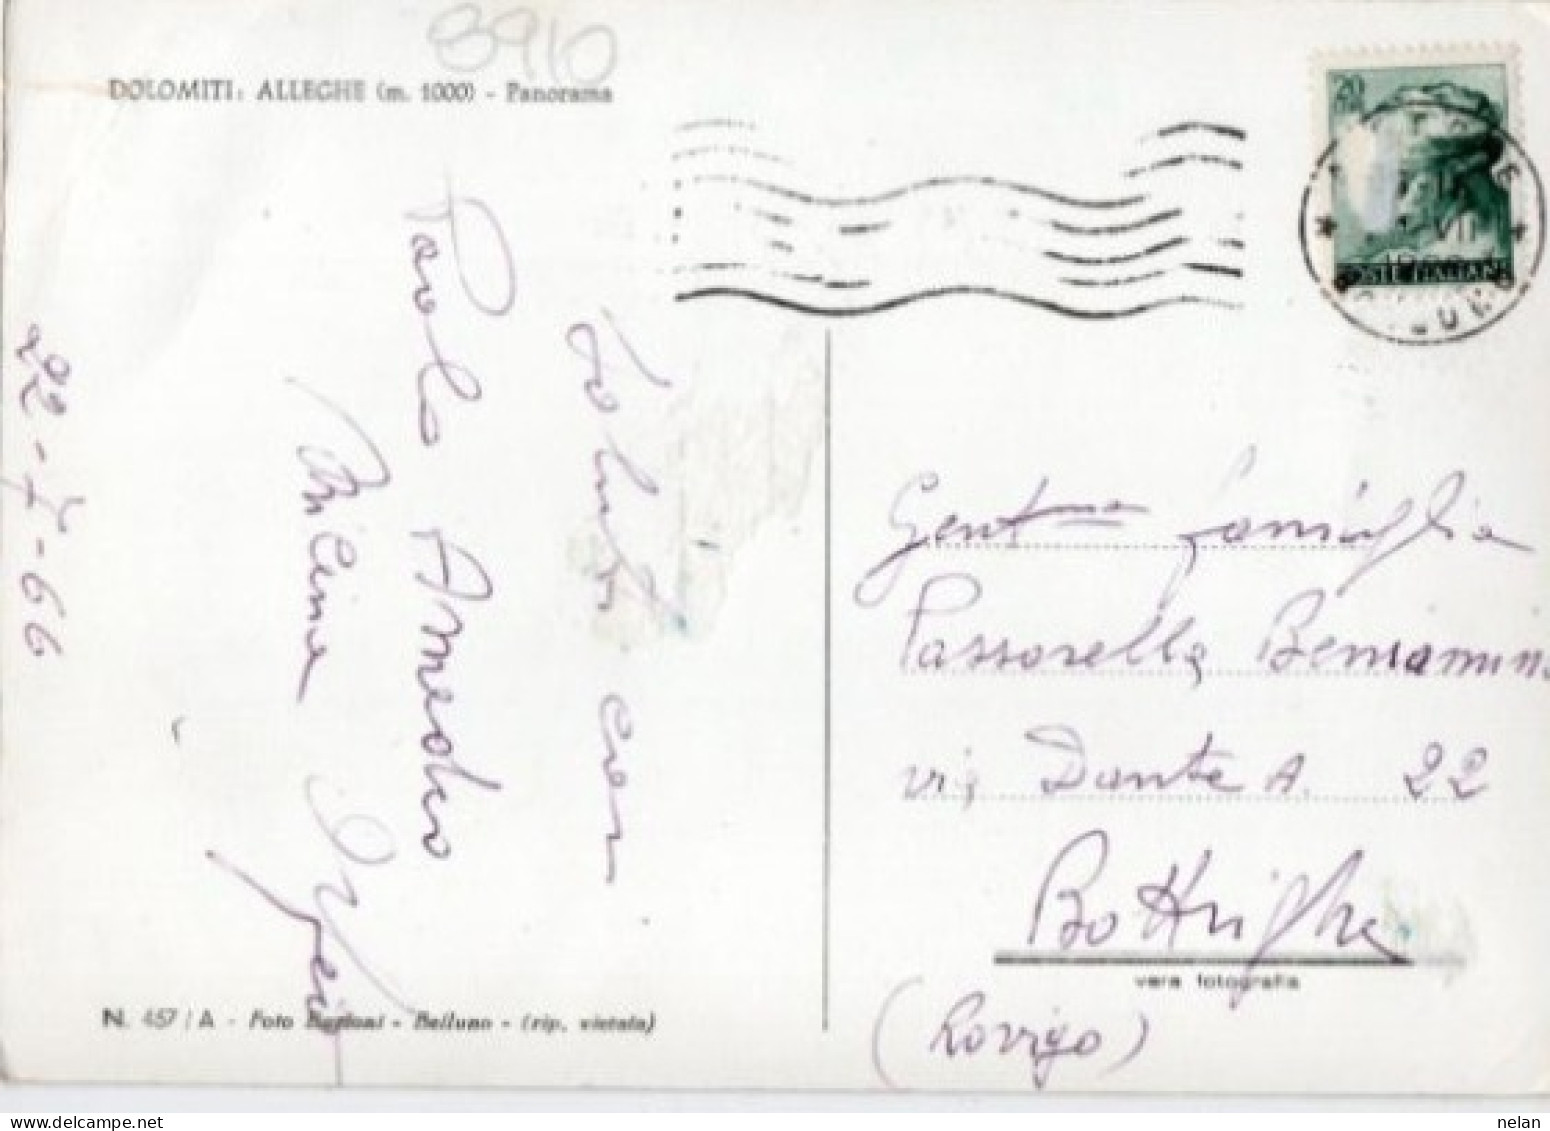 8910
DOLOMITI: ALLEGHE (m. 1000) - Panorama
20
POSTE ITALIANE
VII
Saluti cari
Paolo Amedeo
Milena
22-7-66
Gent.ma famiglia
Passarella Beniamino
via Dante A. 22
Bottrighe
vera fotografia
(Rovigo)
N. 457/A - Foto - Belluno - (rip. vietata)
nelan